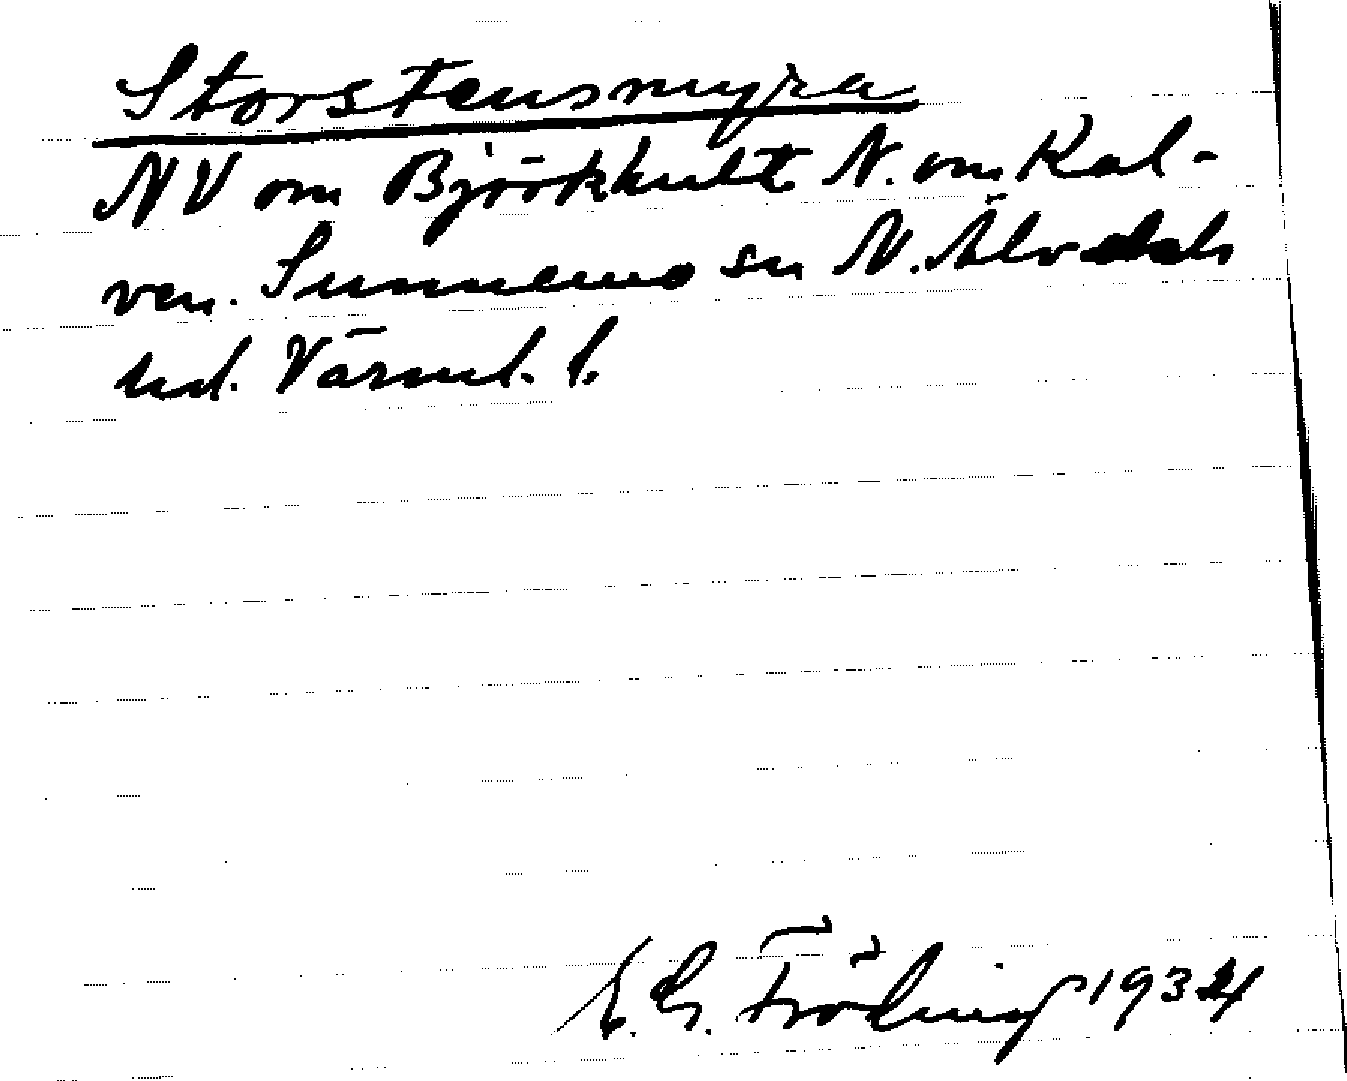 Storstensmyra
NV om Björkhult N. om Kal-
ven. Sunnemo sn N. Älvdals
hd. Värml. l.
Fröding 1934